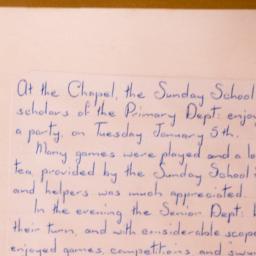 At the Chapel, the Sunday School
scholars of the Primary Dept: enjoy
a party, on Tuesday January 5th.
Many games were played and a
tea, provided by the Sunday School
and helpers was much appreciated.
In the evening the Senior Dept:
their turn, and with considerable scope
enjoyed games, competitions and